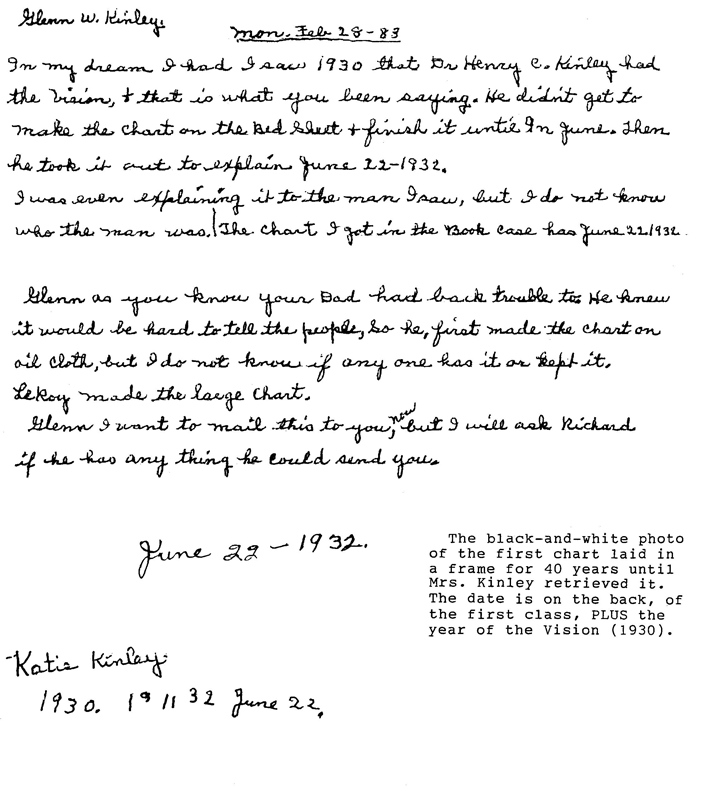 Glenn W. Kinley.
Mon. Feb 28-83
In my dream I had I saw 1930 that Dr Henry C. Kinley had
the Vision, + that is what you been saying. He didn't get to
make the chart on the Bed Sheet + finish it until In June. Then
he took it out to explain June 22-1932.
I was even explaining it to the man I saw, but I do not know
who the man was. The chart I got in the Book case has June 22 1932.
Glenn as you know your Dad had back trouble to. He knew
it would be hard to tell the people, So he, first made the chart on
oil cloth, but I do not know if any one has it or kept it.
LeRoy made the large chart.
Glenn I want to mail this to you, now but I will ask Richard
if he has any thing he could send you.
June 22 - 1932.
The black-and-white photo
of the first chart laid in
a frame for 40 years until
Mrs. Kinley retrieved it.
The date is on the back, of
the first class, PLUS the
year of the Vision (1930).
Katie Kinley.
1930. 19 11 32 June 22.